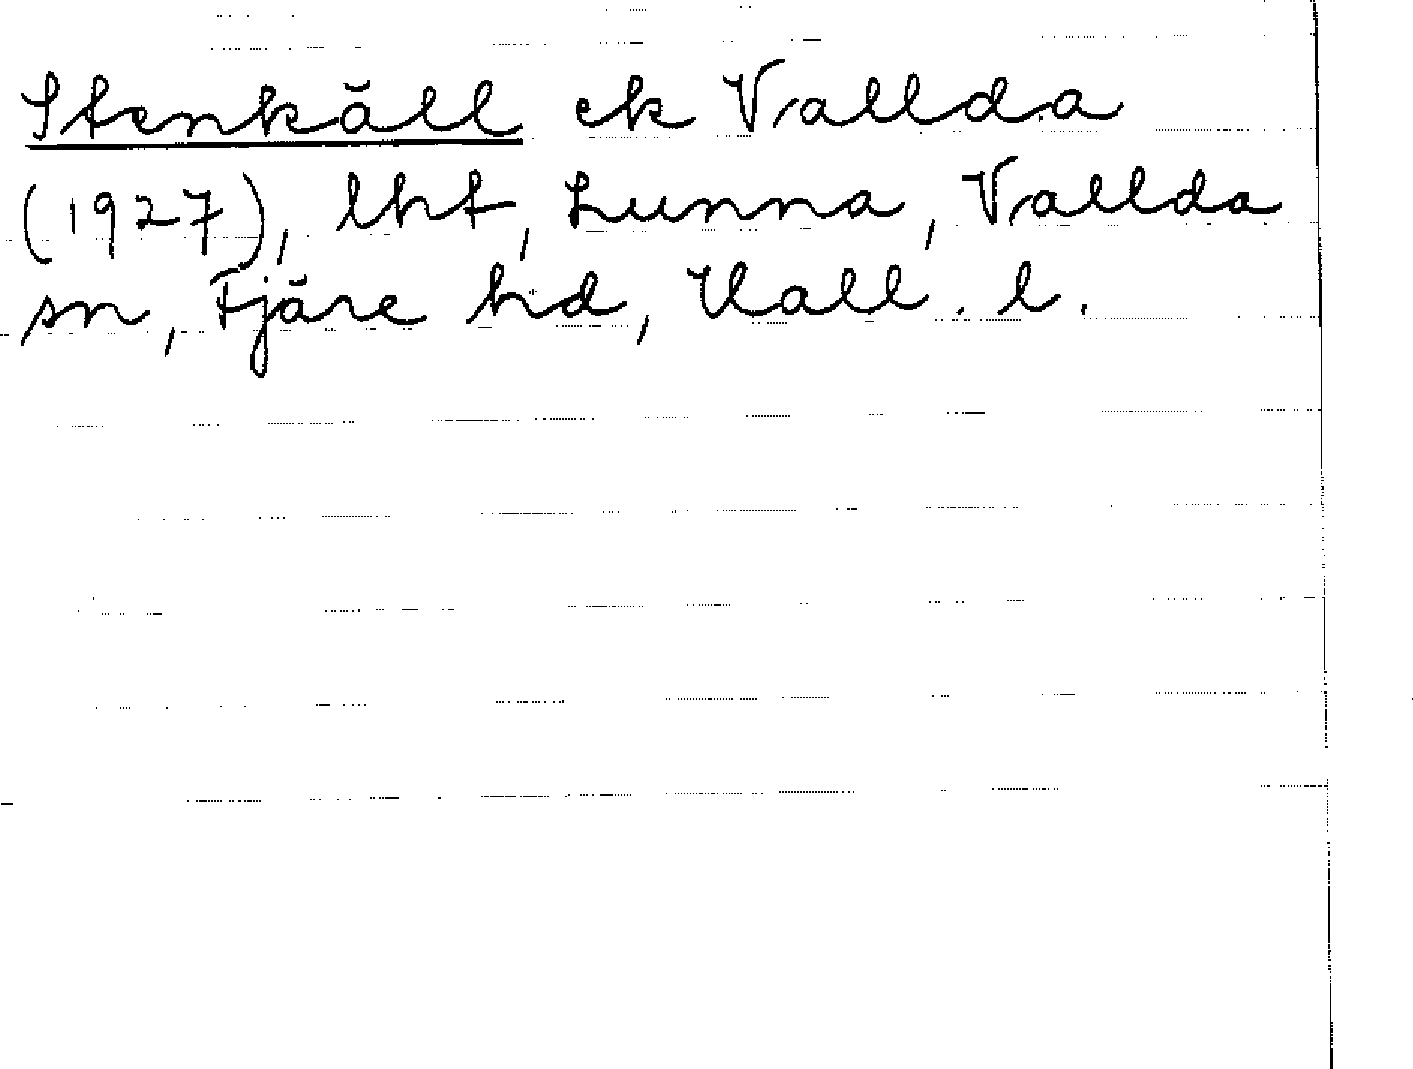 Stenkäll ek Vallda
(1927), lht, Lunna, Vallda
sn, Fjäre hd, Hall. l.